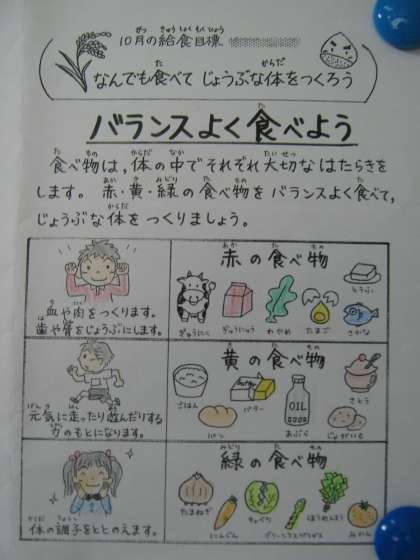 10月の給食目標
なんでも食べて じょうぶな体をつくろう
バランスよく食べよう
食べ物は、体の中でそれぞれ大切なはたらきを
します。赤・黄・緑の食べ物をバランスよく食べて、
じょうぶな体をつくりましょう。
血や肉をつくります。
歯や骨をじょうぶにします。
赤の食べ物
とうふ
ぎゅうにく
ぎゅうにゅう
わかめ
たまご
さかな
元気に走ったり遊んだりする
力のもとになります。
黄の食べ物
ごはん
バター
さとう
パン
OIL
あぶら
じゃがいも
体の調子をととのえます。
緑の食べ物
たまねぎ
にんじん
キャベツ
グリーンアスパラガス
ほうれんそう
みかん